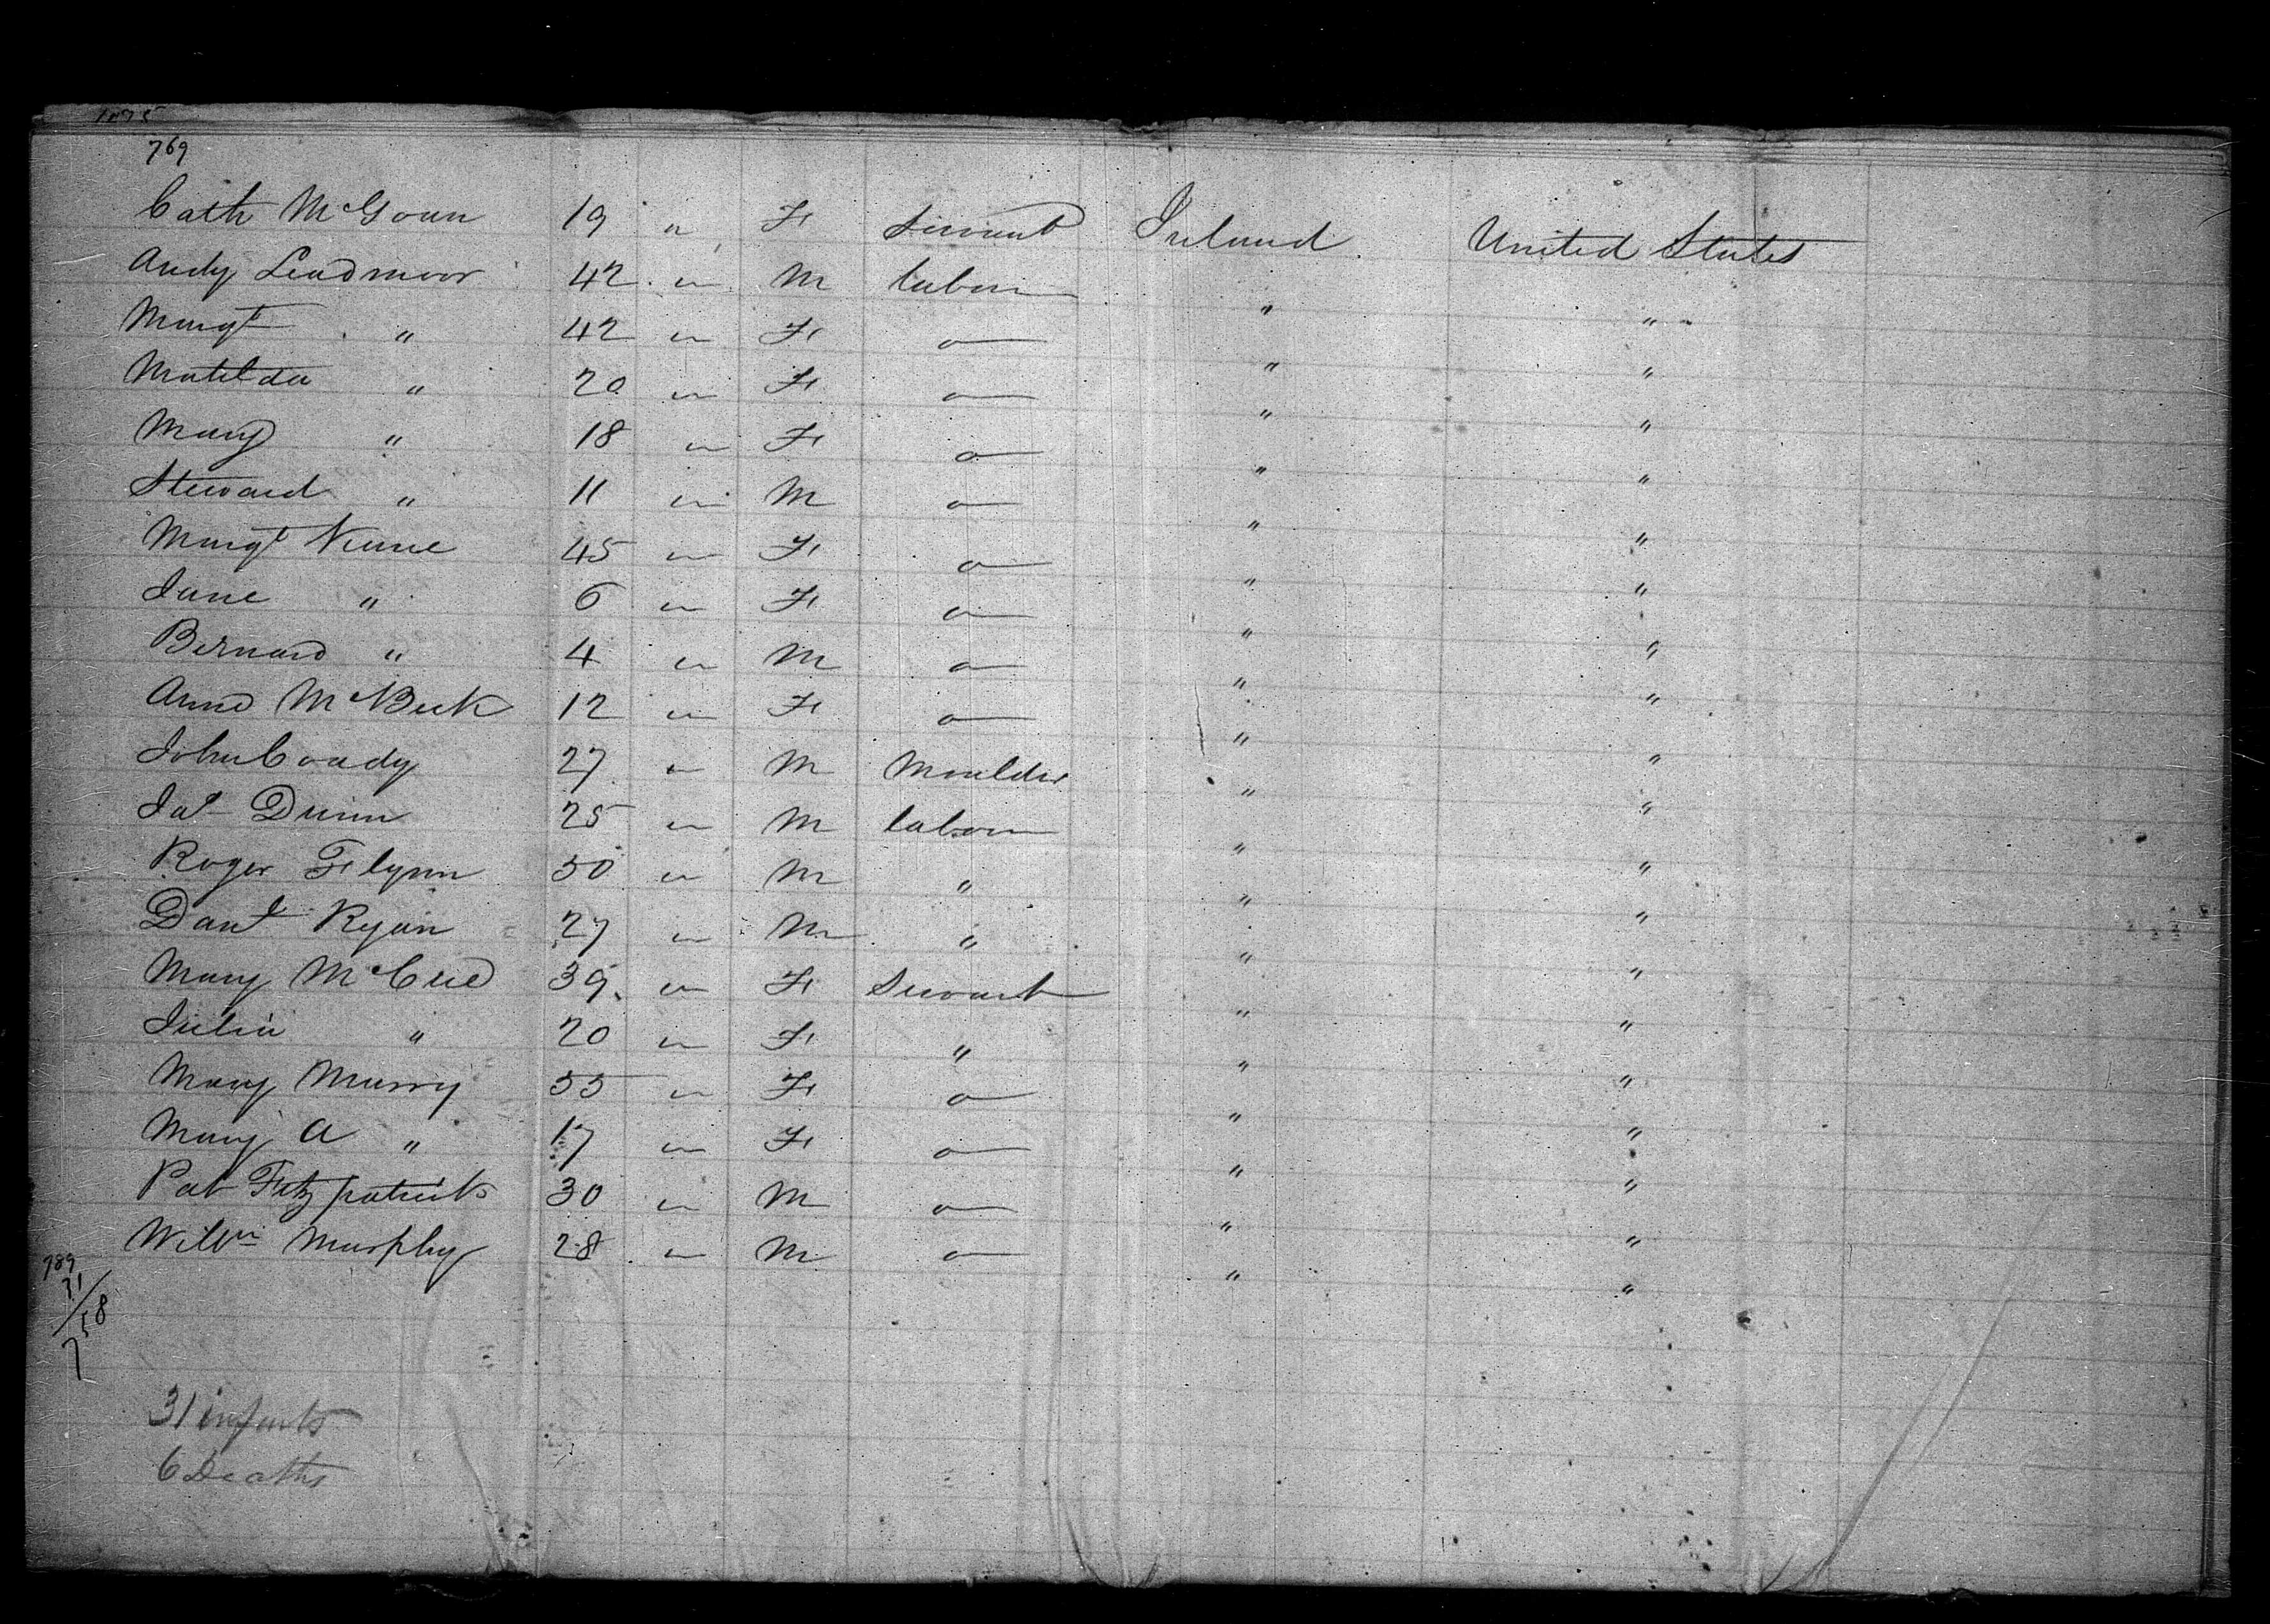 769
Cath McGoun 19 " F Servant Ireland United States
Andy Leadmoor 42 " M labour " "
Margt " 42 " F " " "
Matilda " 20 " F " " "
Mary " 18 " F " " "
Steward " 11 " M " " "
Margt Keane 45 " F " " "
Jane " 6 " F " " "
Bernard " 4 " M " " "
Anne McBeck 12 " F " " "
John Coady 27 " M Moulder " "
Jas Dunn 25 " M labour " "
Roger Flynn 50 " M " " "
Danl Ryan 27 " M " " "
Mary McCue 39 " F Servant " "
Julia " 20 " F " " "
Mary Murry 55 " F " " "
Mary A " 17 " F " " "
Pat Fitzpatrick 30 " M " " "
Willm Murphy 28 " M " " "
789
31
758
31 infants
6 Deaths